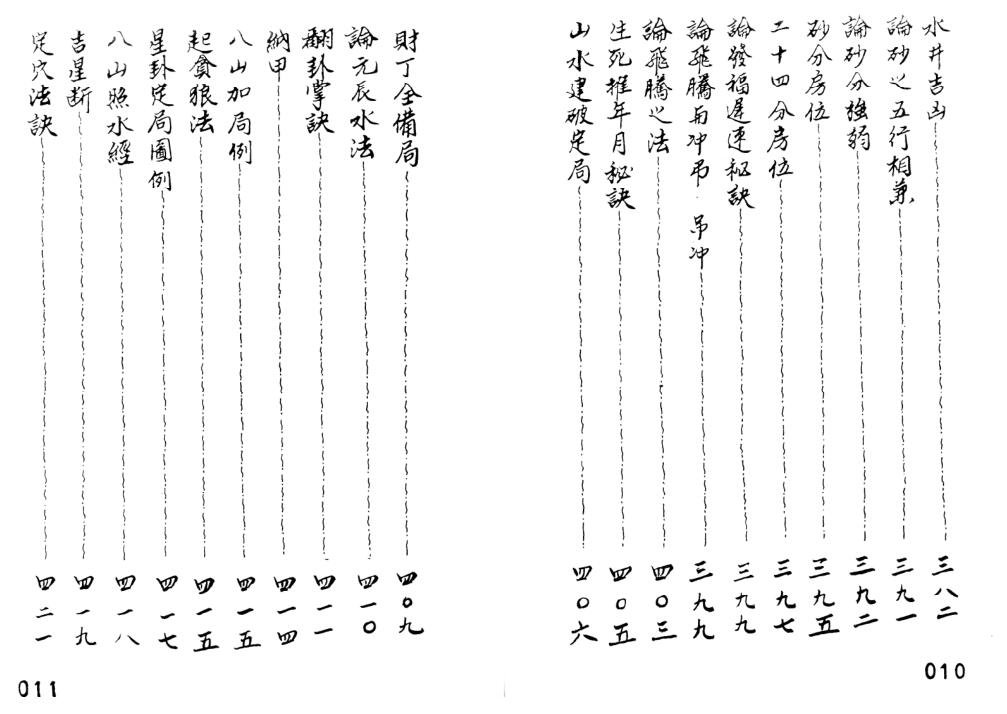 水井吉凶 三八二
論砂之五行相兼 三九一
論砂分強弱 三九二
砂分房位 三九五
二十四分房位 三九七
論發福遲速秘訣 三九九
論飛騰与冲弔 吊冲 三九九
論飛騰之法 四〇三
生死推年月秘訣 四〇五
山水建破定局 四〇六
010
財丁全備局 四〇九
論元辰水法 四一〇
翻卦掌訣 四一一
納甲 四一四
八山加局例 四一五
起貪狼法 四一五
星卦定局圖例 四一七
八山照水經 四一八
吉星断 四一九
定穴法訣 四二一
011